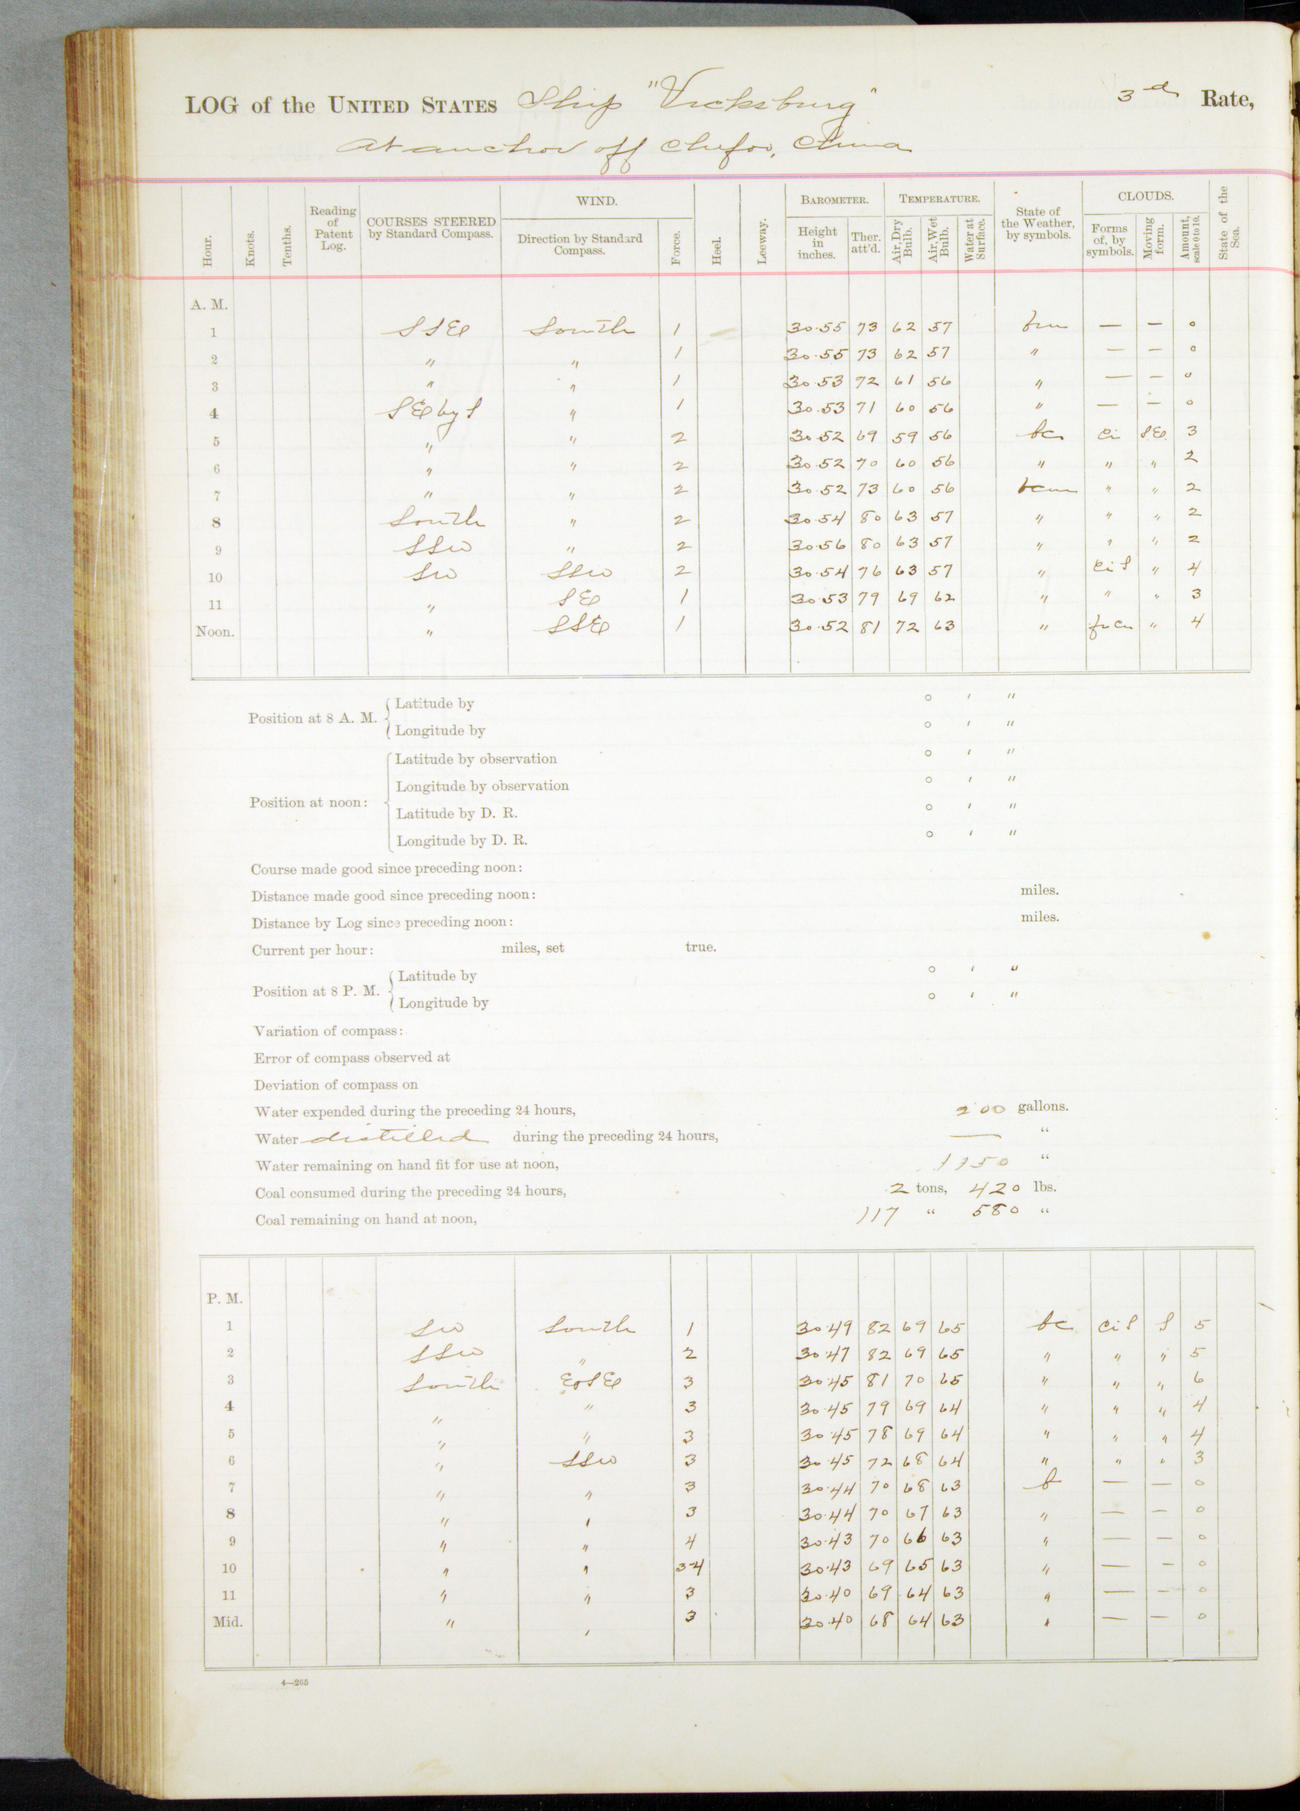 LOG of the UNITED STATES Ship "Vicksburg" 3rd Rate,
At anchor off Chefoo, China
Hour. Knots. Tenths. Reading of Patent Log. COURSES STEERED by Standard Compass. WIND. Direction by Standard Compass. Force. Heel. Leeway. BAROMETER. Height in inches. Ther. att'd. TEMPERATURE. Air, Dry Bulb. Air, Wet Bulb. Water at Surface. State of the Weather, by symbols. CLOUDS. Forms of, by symbols. Moving form. Amount, scale 0 to 10. State of the Sea.
A. M.
1 SSE South 1 30.55 73 62 57 bm — — 0
2 " " 1 30.55 73 62 57 " — — 0
3 " " 1 30.53 72 61 56 " — — 0
4 SE by S " 1 30.53 71 60 56 " — — 0
5 " " 2 30.52 69 59 56 bc ci SE 3
6 " " 2 30.52 70 60 56 " " " 2
7 " " 2 30.52 73 60 56 bcm " " 2
8 South " 2 30.54 80 63 57 " " " 2
9 SSW " 2 30.56 80 63 57 " " " 2
10 SW SSW 2 30.54 76 63 57 " ci S " 4
11 " SE 1 30.53 79 69 62 " " " 3
Noon. " SSE 1 30.52 81 72 63 " " 4
Position at 8 A. M. Latitude by ° ' "
Longitude by ° ' "
Position at noon: Latitude by observation ° ' "
Longitude by observation ° ' "
Latitude by D. R. ° ' "
Longitude by D. R. ° ' "
Course made good since preceding noon:
Distance made good since preceding noon: miles.
Distance by Log since preceding noon: miles.
Current per hour: miles, set true.
Position at 8 P. M. Latitude by ° ' "
Longitude by ° ' "
Variation of compass:
Error of compass observed at
Deviation of compass on
Water expended during the preceding 24 hours, 200 gallons.
Water distilled during the preceding 24 hours, — "
Water remaining on hand fit for use at noon, "
Coal consumed during the preceding 24 hours, 2 tons, 420 lbs.
Coal remaining on hand at noon, 117 " 580 "
P. M.
1 SW South 1 30.49 82 69 65 bc ci S S 5
2 SSW " 2 30.47 82 69 65 " " " 5
3 South 3 30.45 81 70 65 " " " 6
4 " " 3 30.45 79 69 64 " " " 4
5 " " 3 30.45 78 69 64 " " " 4
6 " SSW 3 30.45 72 68 64 " " " 3
7 " " 3 30.44 70 68 63 b — — 0
8 " " 3 30.44 70 67 63 " — — 0
9 " " 4 30.43 70 66 63 " — — 0
10 " " 3-4 30.43 69 65 63 " — — 0
11 " " 3 30.40 69 64 63 " — — 0
Mid. " " 3 30.40 68 64 63 " — — 0
4—265